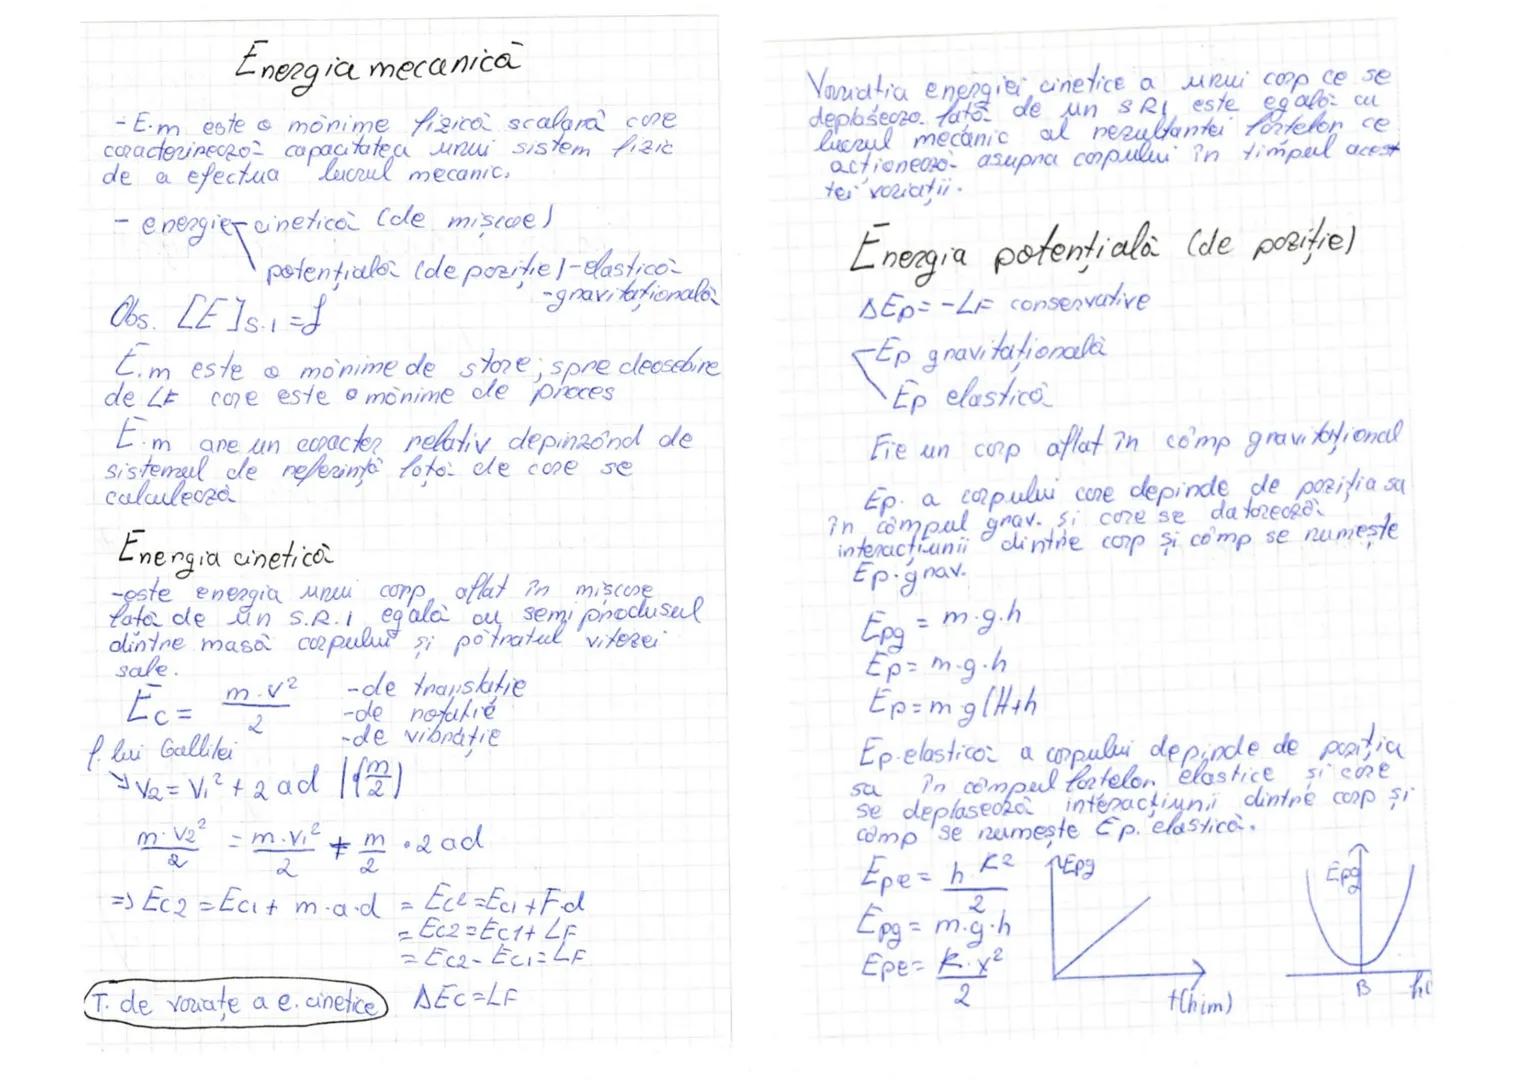 Energia mecanică
- E.m este o mărime fizică scalară care
caracterizează capacitatea unui sistem fizic
de a efectua lucrul mecanic.
- energie cinetică (de mișcare)
potențială (de poziție) - elastică
- gravitațională
Obs. [E]S.I = J
E.m este o mărime de stare; spre deosebire
de LF care este o mărime de proces
E.m are un caracter relativ depinzând de
sistemul de referință față de care se
calculează
Energia cinetică
- este energia unui corp aflat în mișcare
față de un S.R.I egală cu semi produsul
dintre masă corpului și pătratul vitezei
sale.
Ec = m·v²/2
- de translație
- de rotație
- de vibrație
f. lui Gallilei
V2 = V1² + 2ad |(m/2)
m·V2²/2 = m·V1²/2 + m/2 · 2ad
=> Ec2 = Ec1 + m·a·d = Ec2 = Ec1 + F·d
= Ec2 = Ec1 + LF
= Ec2 - Ec1 = LF
T. de variație a e. cinetice ΔEc = LF
Variația energiei cinetice a unui corp ce se
deplasează față de un SRI este egală cu
lucrul mecanic al rezultantei forțelor ce
acționează asupra corpului în timpul acest
tei variații.
Energia potențială (de poziție)
ΔEp = -LF conservative
Ep gravitațională
Ep elastică
Fie un corp aflat în câmp gravitațional
Ep. a corpului care depinde de poziția sa
în câmpul grav. și care se datorează
interacțiunii dintre corp și câmp se numește
Ep. grav.
Epg = m·g·h
Ep = m·g·h
Ep = m·g(H+h
Ep. elastică a corpului depinde de poziția
sa în câmpul forțelor elastice și care
se deplasează interacțiunii dintre corp și
câmp se numește Ep. elastică.
Epe = h·k²/2
Epg = m·g·h
Epe = k·x²/2
Epg
t(him)
Epg
B